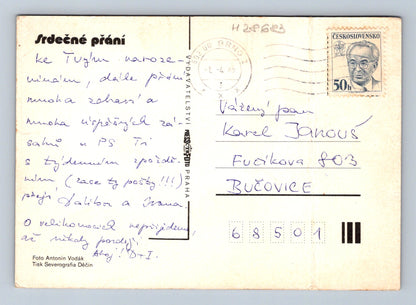 Srdečné přání
ke Tvým naroze-
ninám, dále přejí
mnoho zdraví a
mnoho úspěšných zá-
sahů u PS Ti
s týdenním zpoždě-
ním (zase ty pošty!!!)
přejí Dalibor a Ivana.
O velikonocích nepřijedem,
až někdy později.
Ahoj! D+I.
Foto Antonín Vodák
Tisk Severografia Děčín
VYDAVATELSTVÍ
PRAHA
BRNO 2
ČESKOSLOVENSKO
50h
Vážený pan
Karel Janouš
Fučíkova 803
BUČOVICE
68501